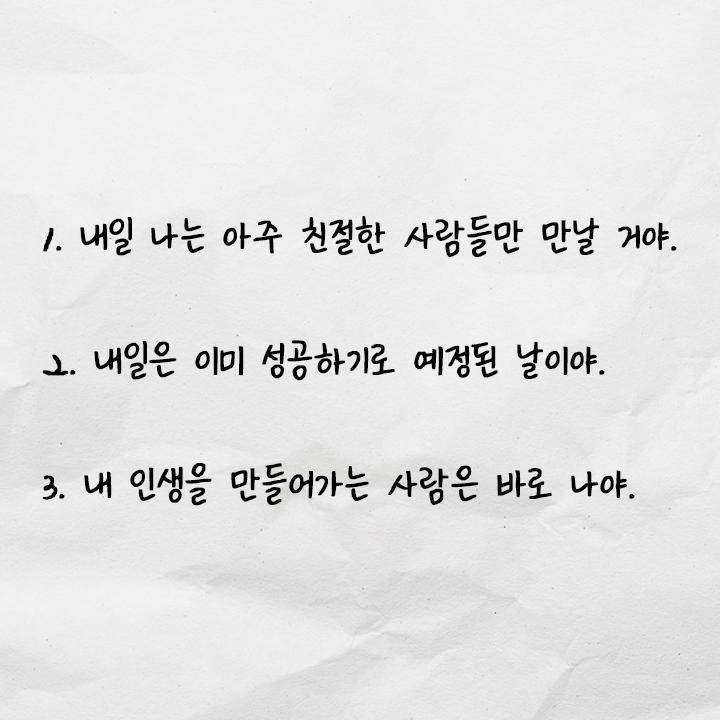 1. 내일 나는 아주 친절한 사람들만 만날 거야.
2. 내일은 이미 성공하기로 예정된 날이야.
3. 내 인생을 만들어가는 사람은 바로 나야.